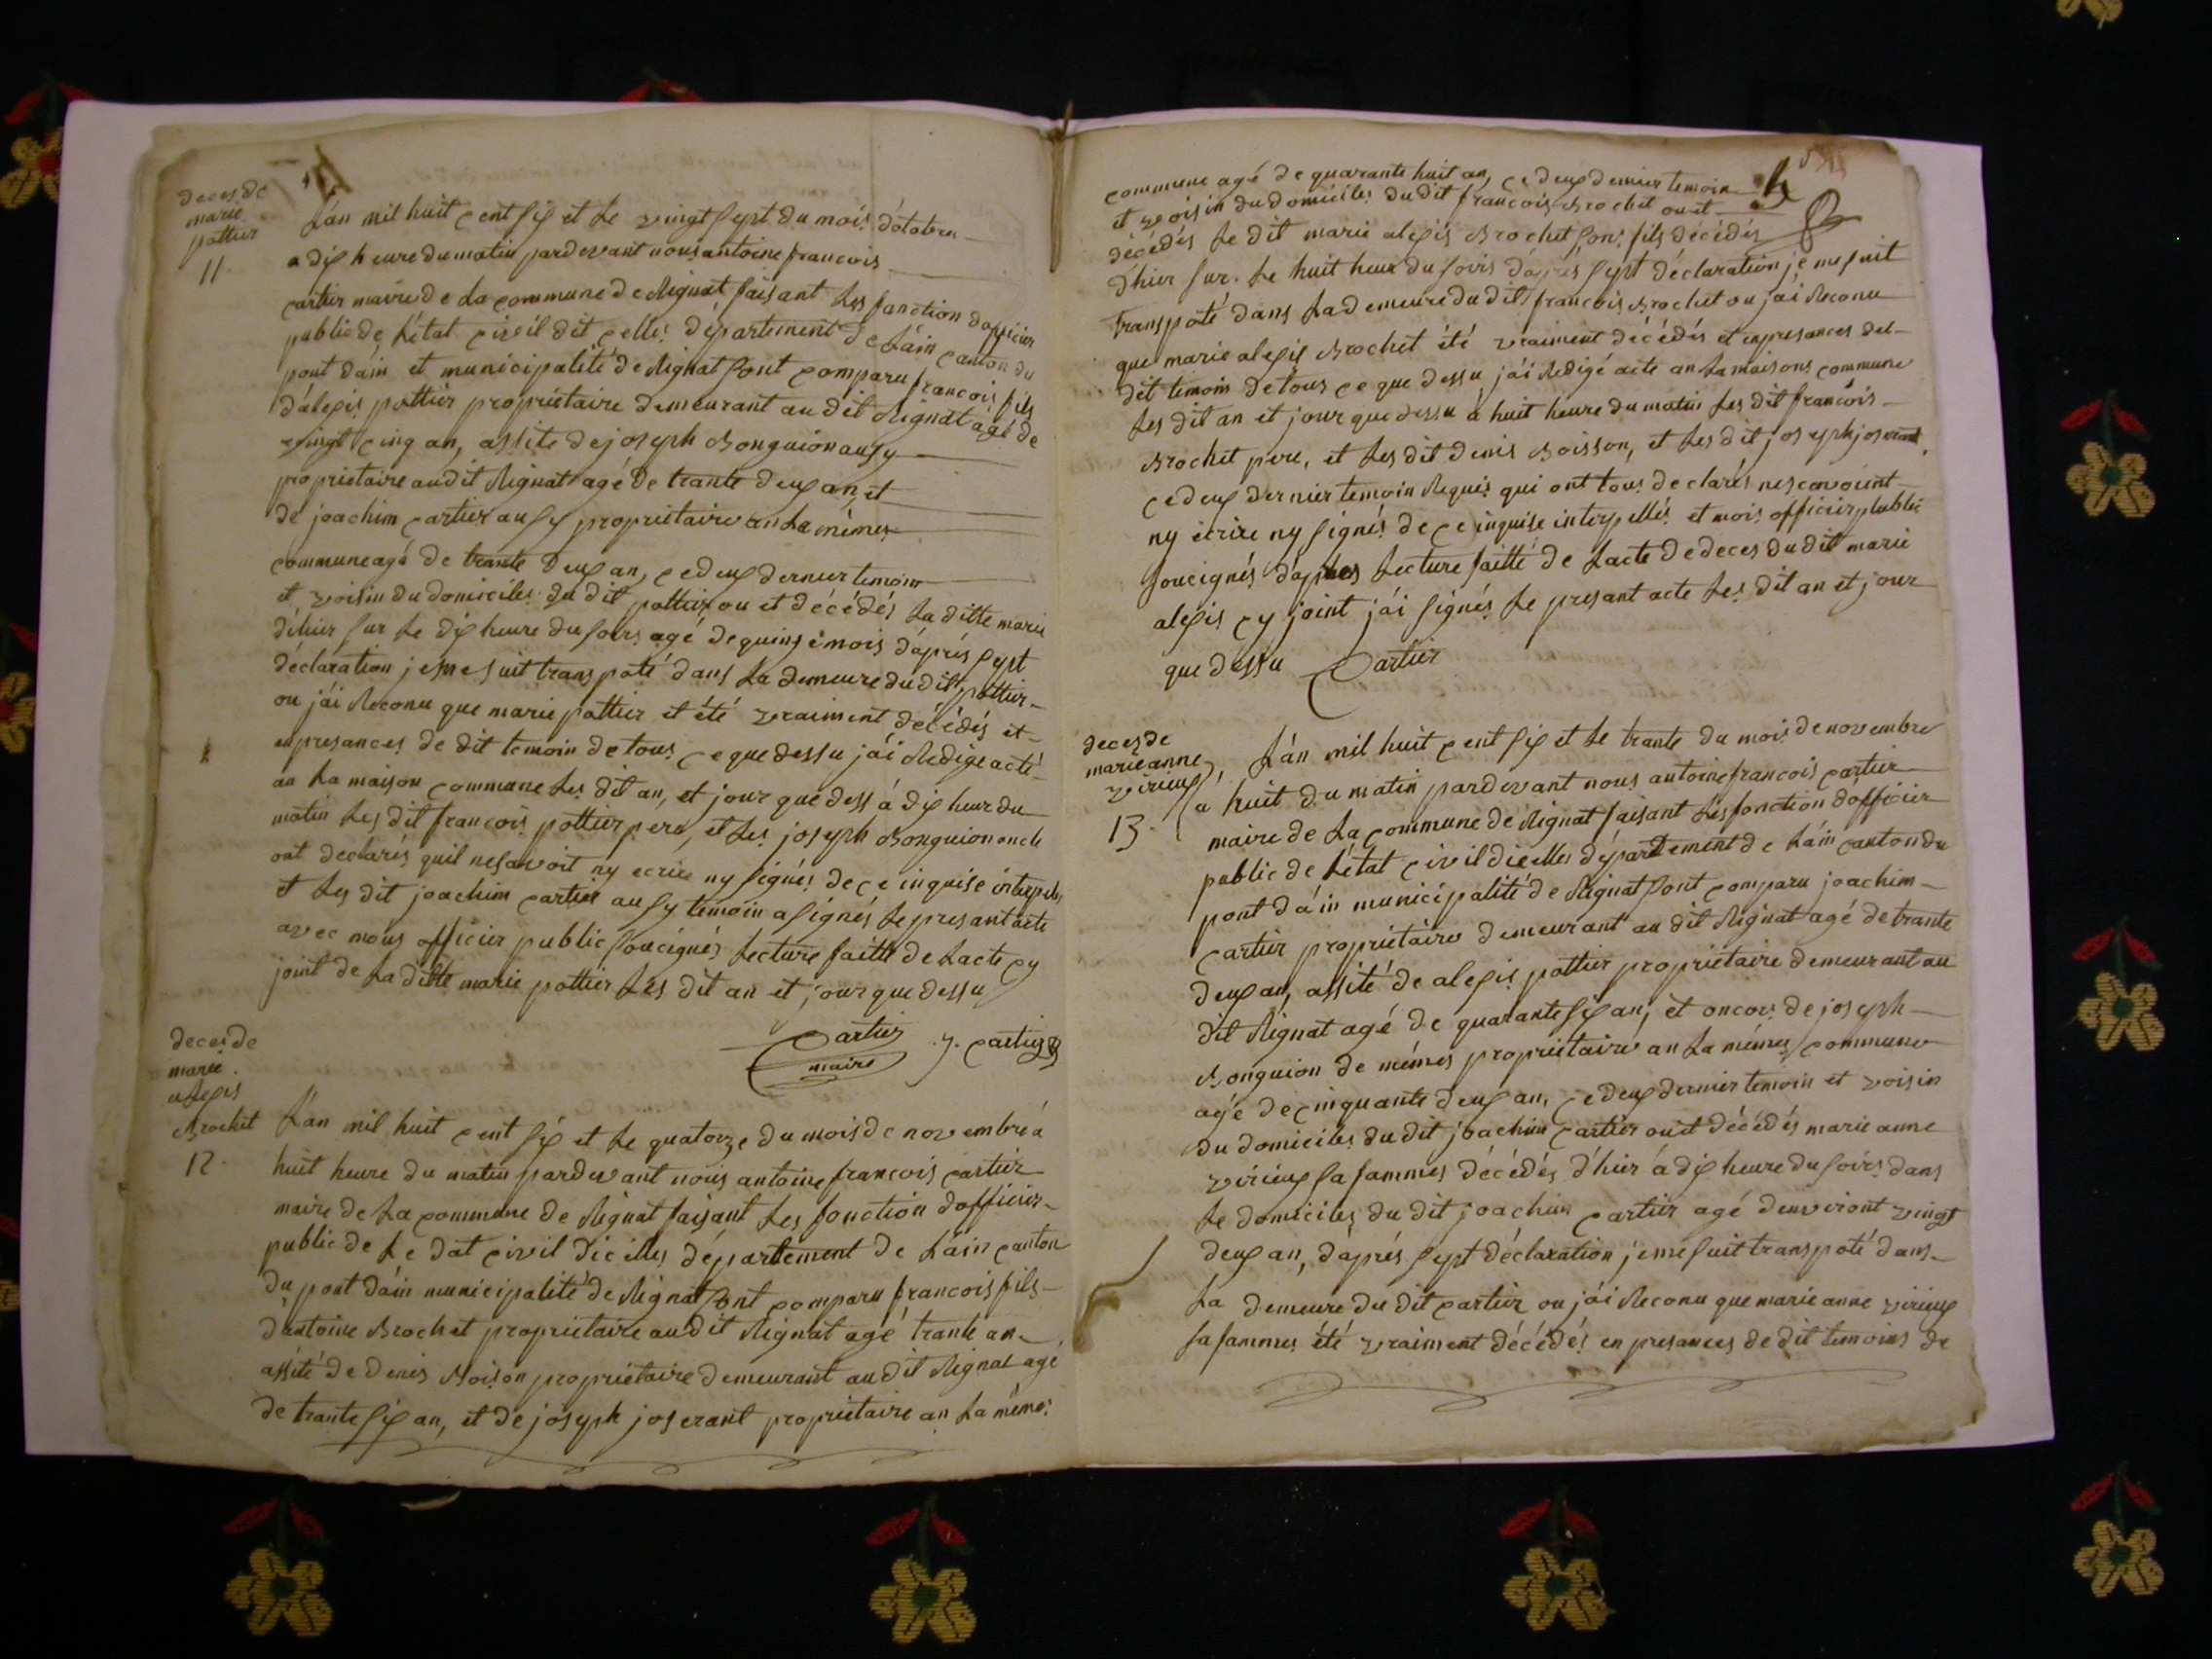 deces de
marie
pottier
11.
L'an mil huit cent six et le vingt sept du mois d'otobre
a dix heure du matin pardevant nous antoine francois
cartier maire de la commune de Rignat faisant les fonction d'officier
public de l'état civil dit celles département de l'ain canton du
pont d'ain et municipalité de Rignat sont comparu francois fils
d'alexis pottier propriétaire demeurant au dit Rignat agé de
vingt cinq an, assité de joseph Bonguion ausy
propriétaire audit Rignat agé de trante deux an et
de joachim cartier ausy propriétaire an la mêmes
commune agé de trante deux an, ce deux dernier temoins
et voisin du domiciles du dit pottier ou et décédés la ditte marie
d'hier sur le dix heure du soirs agé de quinse mois d'après sept
déclaration je me suit transpoté dans la demeure du dit pottier
ou j'ai Reconu que marie pottier et été vraiment décédés et
enpresances de dit temoin de tous ce que dessu j'ai Redige acte
an la maison commune les dit an, et jour que dess à dix heur du
matin les dit francois pottier pere, et les joseph Bonguion oncle
ont declarés quil nesavoit ny ecrire ny signés de ce inquise interpelés
et les dit joachim cartier ausy temoin a signés le presant acte
avec mous officier public soucignés lecture faitte de lacte cy
joint de la ditte marie pottier les dit an et jour que dessu
Cartier
maire
J. cartier
deces de
marie
alexis
Brochet
12.
L'an mil huit cent six et le quatorze du mois de novembre à
huit heure du matin pardevant nous antoine francois cartier
maire de la commune de Rignat faisant les fonction d'officier
public de le dat civil dicelles département de l'ain canton
du pont d'ain municipalité de Rignat sont comparu francois fils
d'antoine Brochet propriétaire audit Rignat agé trante an
assité de denis Boison propriétaire demeurant au dit Rignat agé
de trante six an, et de joseph joserant propriétaire an la mêmes
commune agé de quarante huit an, ce deux dernier temoin
et voisin du domiciles du dit francois Brochet ou et
décédés le dit marie alexis Brochet son fils décédés
d'hier sur le huit heur du soirs d'après sept déclaration je me suit
transpoté dans la demeure du dit francois Brochet ou j'ai Reconu
que marie alexis Brochet été vraiment décédés et enpresances del
dit temoin de tous ce que dessu j'ai Redigé acte an la maisons commune
les dit an et jour que dessu à huit heure du matin les dit francois
Brochet pere, et les dit denis Boisson, et les dit joseph joserant,
ce deux dernier temoin Requis qui ont tous declarés nescavoint
ny écrire ny signés de ce inquise interpellés et mois officier plublic
soucignés d'aptes lecture faitte de lacte de deces du dit marie
alexis cy joint j'ai signés le presant acte les dit an et jour
que dessu Cartier
deces de
marie anne
virieux
13.
L'an mil huit cent six et le trante du mois de novembre
a huit du matin pardevant nous antoine francois cartier
maire de la commune de Rignat faisant les fonction d'officier
public de l'état civil dicelles département de l'ain canton du
pont d'ain municipalité de Rignat sont comparu joachim
cartier propriétaire demeurant au dit Rignat agé de trante
deux an, assité de alexis pottier propriétaire demeurant au
dit Rignat agé de quarante six an, et oncors de joseph
Bonguion de mêmes propriétaire an la mêmes commune
agé de cinquante deux an, ce deux dernier temoin et voisin
du domiciles du dit joachim cartier ou et décédés marie anne
virieux sa fammes décédés d'hier à dix heure du soirs dans
le domiciles du dit joachim cartier agé denviront vingt
deux an, d'après sept déclaration je me suit transpoté dans
la demeure du dit cartier ou j'ai Reconu que marie anne virieux
sa fammes été vraiment décédés en presances de dit temoins de